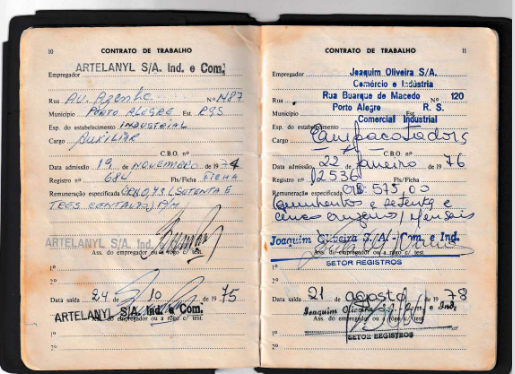 10 CONTRATO DE TRABALHO
ARTELANYL S/A. Ind. e Com.
Empregador
Rua AV. Azenha Nº 1487
Município PORTO ALEGRE Est. RGS
Esp. do estabelecimento INDUSTRIAL
Cargo AUXILIAR
C.B.O. nº
Data admissão 19 de NOVEMBRO de 1974
Registro nº 684 Fls/Ficha FICHA
Remuneração especificada (SETENTA E
TRES CENTAVOS) P/H
ARTELANYL S/A. Ind.
Ass. do empregador ou a rogo c/ test.
1º
2º
Data saída 24 de 10 de 1975
ARTELANYL S/A. Ind. e Com.
Ass. do empregador ou a rogo c/ test.
1º
2º
CONTRATO DE TRABALHO 11
Joaquim Oliveira S/A.
Empregador
Comércio e Indústria
Rua Rua Buarque de Macedo Nº 120
Município Porto Alegre Est. R. S.
Esp. do estabelecimento Comercial Industrial
Cargo Empacotadora
C.B.O. nº
Data admissão 22 de janeiro de 1976
Registro nº 02536 Fls/Ficha
Remuneração especificada 575,00
quinhentos e setenta e
cinco cruzeiros / mensais
Joaquim Oliveira S/A. - Com. e Ind.
Ass. do empregador ou a rogo c/ test.
SETOR REGISTROS
1º
2º
Data saída 21 de agosto de 1978
Joaquim Oliveira S/A. Com. e Ind.
Ass. do empregador ou a rogo c/ test.
1º
SETOR REGISTROS
2º